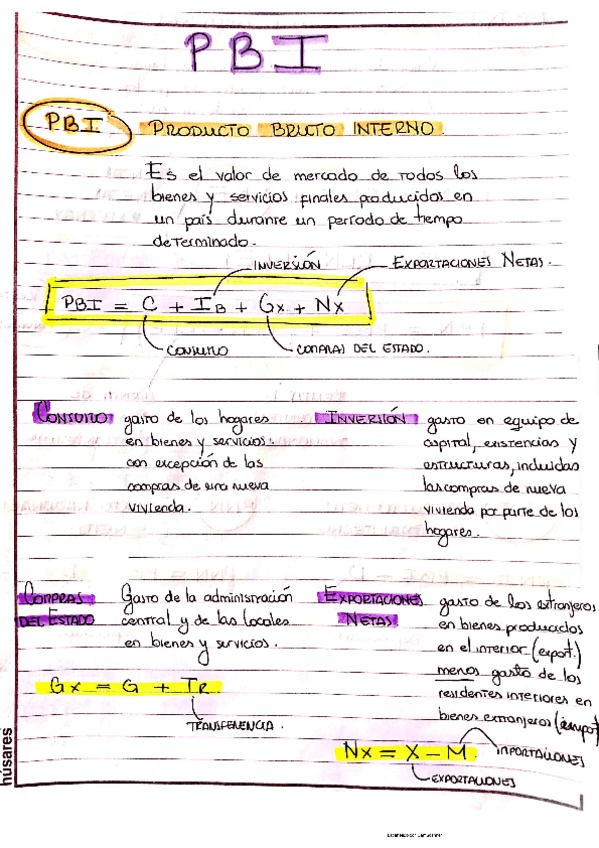 PBI
PBI PRODUCTO BRUTO INTERNO
Es el valor de mercado de todos los
bienes y servicios finales producidos en
un país durante un período de tiempo
determinado.
INVERSIÓN EXPORTACIONES NETAS.
PBI = C + IB + Gx + Nx
CONSUMO COMPRAS DEL ESTADO.
CONSUMO gasto de los hogares
en bienes y servicios.
con excepción de las
compras de una nueva
vivienda.
INVERSIÓN gasto en equipo de
capital, existencias y
estructuras, incluidas
las compras de nueva
vivienda por parte de los
hogares.
COMPRAS DEL ESTADO
Gasto de la administración
central y de las locales
en bienes y servicios.
Gx = G + TR
TRANSFERENCIA.
EXPORTACIONES NETAS
gasto de los extranjeros
en bienes producidos
en el interior (export.)
menos gasto de los
residentes interiores en
bienes extranjeros (import)
Nx = X - M
IMPORTACIONES
EXPORTACIONES
húsares